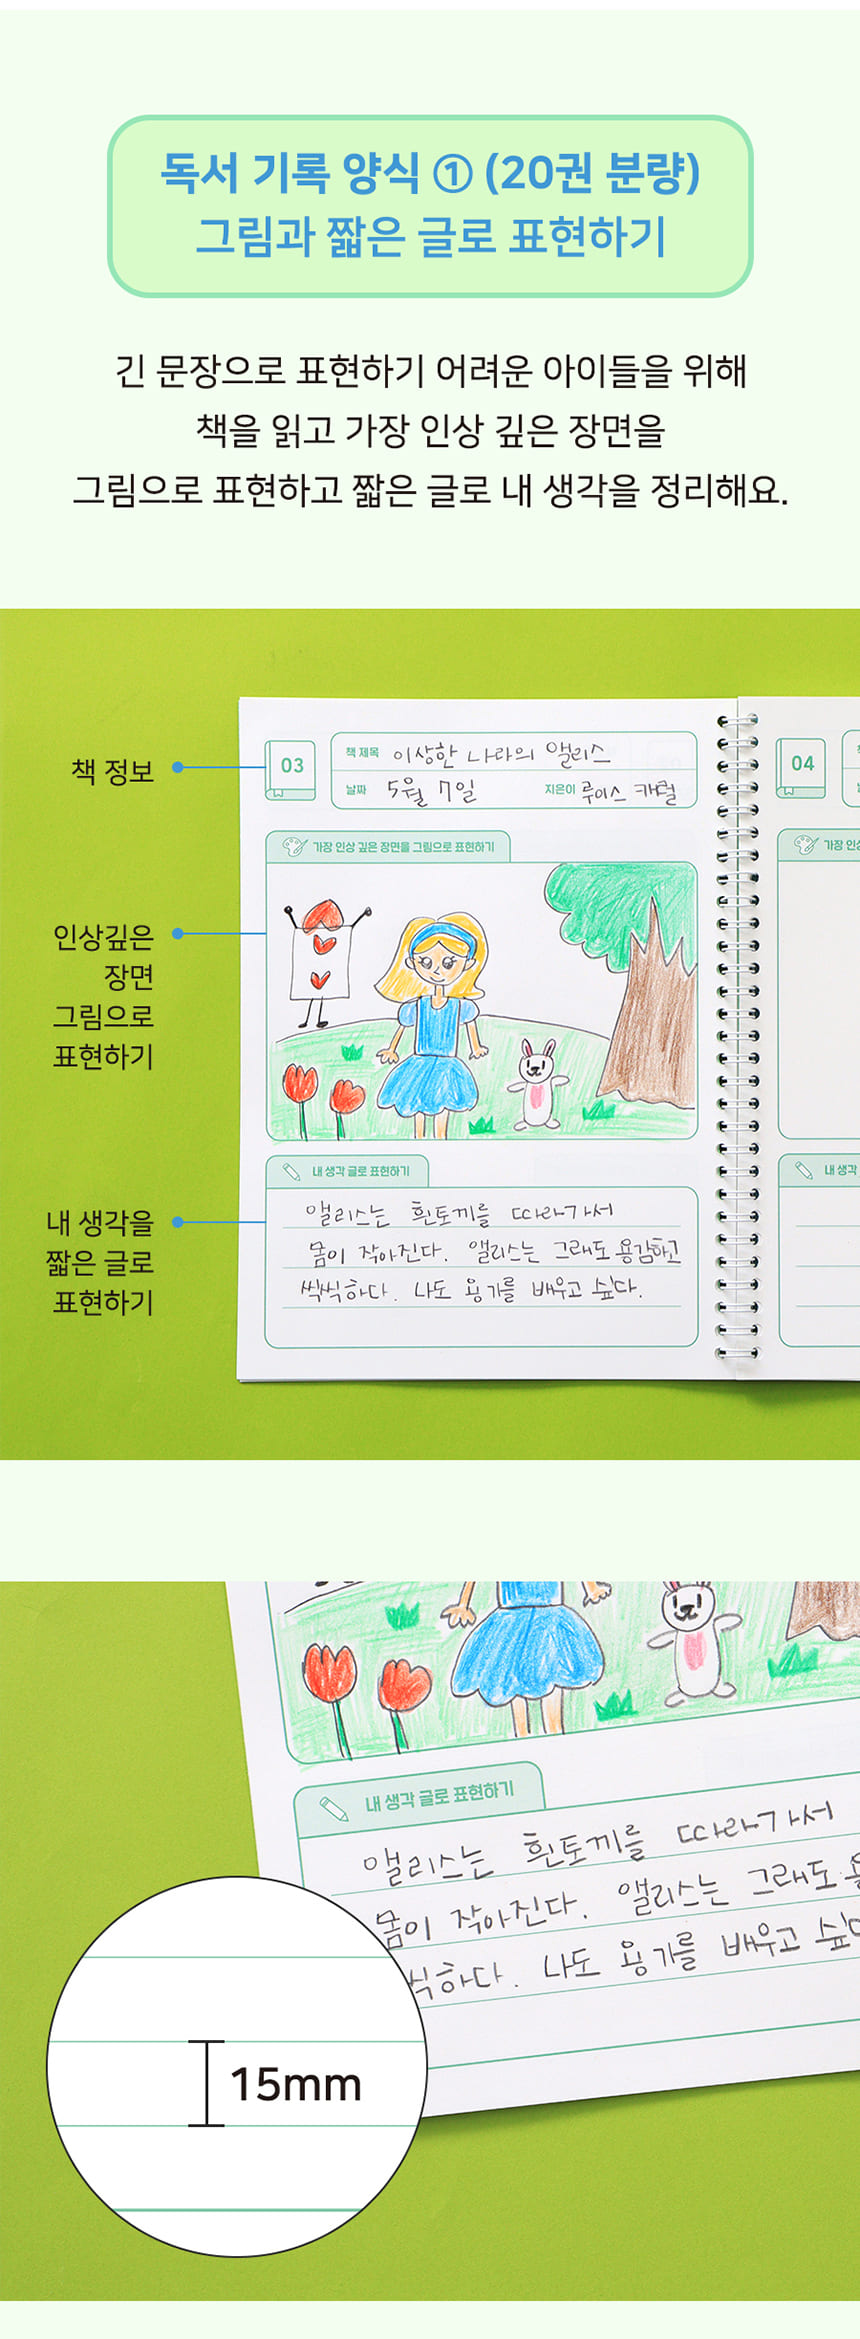 독서 기록 양식 ① (20권 분량)
그림과 짧은 글로 표현하기
긴 문장으로 표현하기 어려운 아이들을 위해
책을 읽고 가장 인상 깊은 장면을
그림으로 표현하고 짧은 글로 내 생각을 정리해요.
책 정보
03
책 제목 이상한 나라의 앨리스
날짜 5월 7일 지은이 루이스 캐럴
04
인상깊은
장면
그림으로
표현하기
가장 인상 깊은 장면을 그림으로 표현하기
가장 인상
내 생각을
짧은 글로
표현하기
내 생각 글로 표현하기
앨리스는 흰토끼를 따라가서
몸이 작아진다. 앨리스는 그래도 용감하고
씩씩하다. 나도 용기를 배우고 싶다.
내 생각
내 생각 글로 표현하기
앨리스는 흰토끼를 따라가서
몸이 작아진다. 앨리스는 그래도
씩하다. 나도 용기를 배우고 싶다
15mm